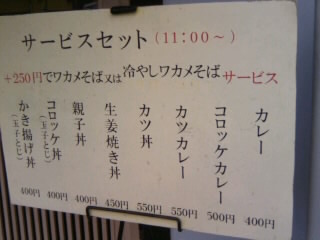 サービスセット(11:00〜)
+250円でワカメそば又は冷やしワカメそばサービス
カレー 400円
コロッケカレー 500円
カツカレー 550円
カツ丼 550円
生姜焼き丼 450円
親子丼 400円
コロッケ丼(玉子とじ) 400円
かき揚げ丼(玉子とじ) 400円